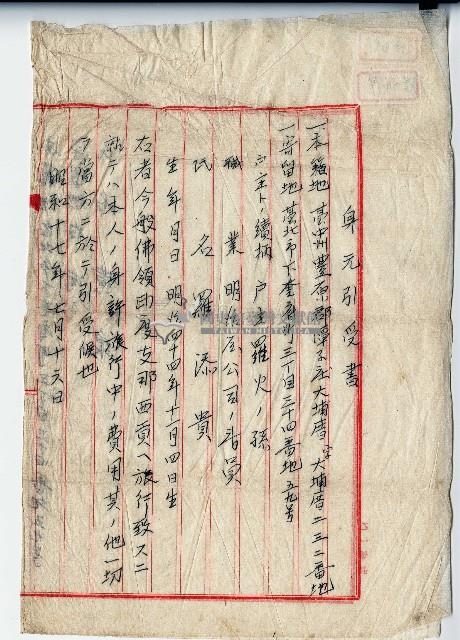 身元引受書
一本籍地 臺中州豐原郡潭子庄大埔厝字大埔厝二三二番地
一寄留地 臺北市下奎府町三丁目三十四番地五九号
戸主トノ續柄 戸主羅火ノ孫
職業 明治屋公司ノ店員
氏名 羅添貴
生年月日 明治四十四年十一月四日生
右者今般佛領印度支那西貢ヘ旅行致スニ
就テハ本人ノ身許旅行中ノ費用其ノ他一切
ヲ當方ニ於テ引受候也
昭和十七年七月十六日